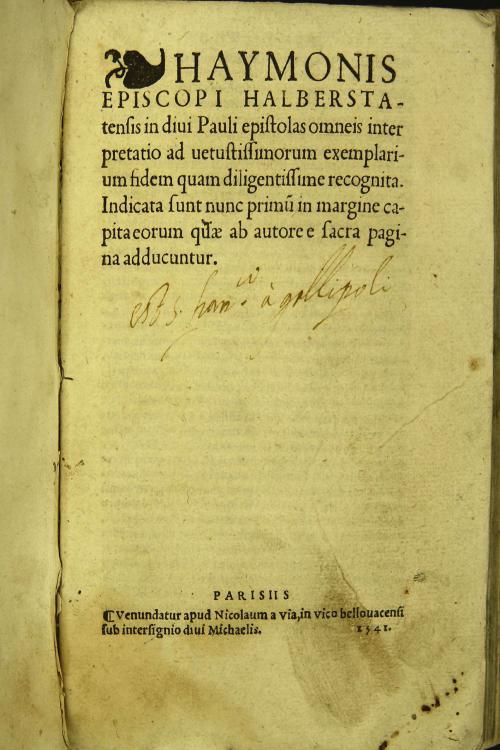 HAYMONIS
EPISCOPI HALBERSTA-
tensis in diui Pauli epistolas omneis inter
pretatio ad uetustissimorum exemplari-
um fidem quam diligentissime recognita.
Indicata sunt nunc primū in margine ca-
pita eorum quæ ab autore e sacra pagi-
na adducuntur.
est s. franci à gallipoli
PARISIIS
¶ Venundatur apud Nicolaum a via, in vico bellouacensi
sub intersignio diui Michaelis. 1541.